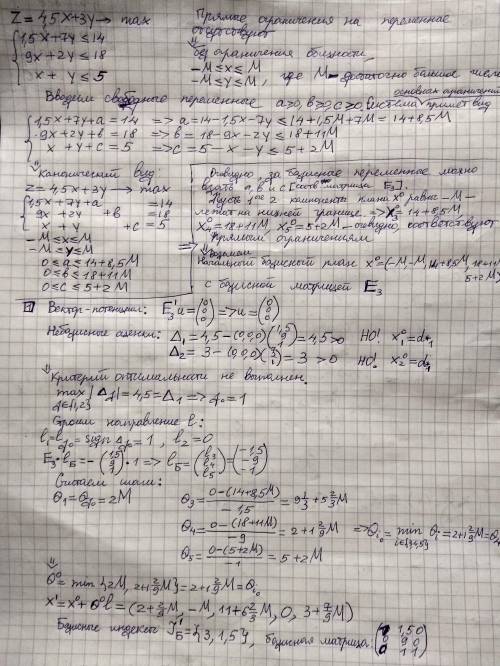 Z = 4,5x+3y → max
Прямые ограничения на переменные
отсутствуют
{1,5x+7y ≤ 14
9x+2y ≤ 18
x + y ≤ 5
⇓
без ограничения
-M ≤ x ≤ M
-M ≤ y ≤ M, где M - достаточно большое число
основных ограничений
Вводим свободные переменные a≥0, b≥0, c≥0, система примет вид
{1,5x+7y+a = 14 => a = 14-1,5x-7y ≤ 14+1,5M+7M = 14+8,5M
9x+2y+b = 18 => b = 18-9x-2y ≤ 18+11M
x + y + c = 5 => c = 5-x-y ≤ 5+2M
⇓
Канонический вид:
z = 4,5x+3y → max
{1,5x+7y+a = 14
9x + 2y + b = 18
x + y + c = 5
-M ≤ x ≤ M
-M ≤ y ≤ M
0 ≤ a ≤ 14+8,5M
0 ≤ b ≤ 18+11M
0 ≤ c ≤ 5+2M
Очевидно, за базисные переменные можно
взять a, b и c [соотв матрица E₃].
Пусть 1ые 2 компоненты плана x⁰ равны -M -
лежат на нижней границе. => x₃⁰ = 14+8,5M
x₄⁰ = 18+11M, x₅⁰ = 5+2M - очевидно, соответствуют
прямым ограничениям
⇓
Начальный базисный план x⁰=(-M,-M,14+8,5M,18+11M,
5+2M)
с базисной матрицей E₃
1 Вектор-потенциал: E₃'u = (0 0 0) => u = (0 0 0)
Небазисные оценки: Δ₁ = 4,5-(0,0,0)(1,5 9 1) = 4,5>0 НО! x₁⁰=d*₁
Δ₂ = 3-(0,0,0)(7 2 1) = 3 >0 НО! x₂⁰=d*₂
⇓
Критерий оптимальности не выполнен.
max |Δj| = 4,5 = Δ₁ => j₀ = 1
j∈{1,2}
Строим направление l:
l₁ = lj₀ = sign Δj₀ = 1, l₂ = 0
E₃·lБ = -(1,5 9 1)·1 => lБ = (l₃ l₄ l₅) = (-1,5 -9 -1)
Считаем шаги:
θ₁ = θj₀ = 2M
θ₃ = 0-(14+8,5M) / -1,5 = 9⅓ + 5⅔M
θ₄ = 0-(18+11M) / -9 = 2+1 2/9 M => θi₀ = min θi = 2+1 2/9 M = θ₄
i∈{3,4,5}
θ₅ = 0-(5+2M) / -1 = 5+2M
⇓
θ⁰ = min {2M, 2+1 2/9 M} = 2+1 2/9 M = θi₀
x¹ = x⁰ + θ⁰l = (2+2/9 M, -M, 11+6⅔M, 0, 3+7/9 M)
Базисные индексы J¹Б = {3,1,5}, базисная матрица (1 1,5 0 0 9 0 0 1 1)